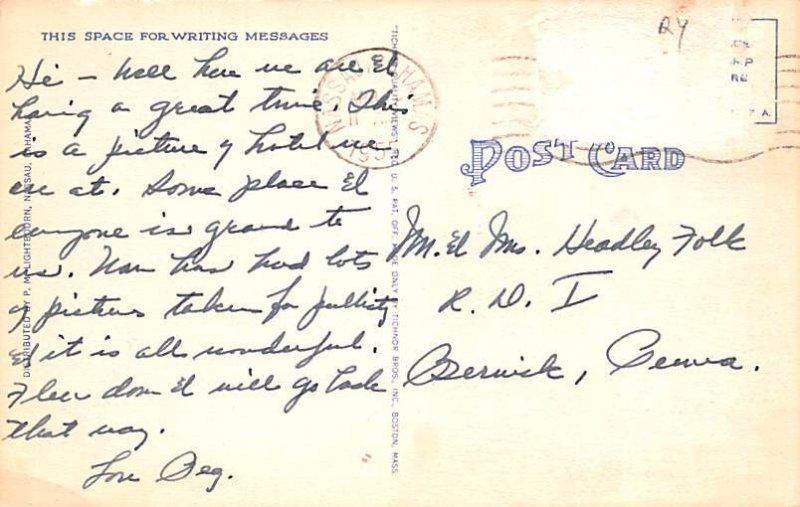 THIS SPACE FOR WRITING MESSAGES
Hi - Well here we are &
having a great time. This
is a picture of hotel we
are at. Some place &
everyone is grand to
us. Nan has had lots
of pictures taken for publicity
& it is all wonderful.
Flew down & will go back
that way.
Love Peg.
DISTRIBUTED BY P. M. LIGHTBOURN, NASSAU, BAHAMAS
TICHNOR QUALITY VIEWS, REG. U. S. PAT. OFF. MADE ONLY BY TICHNOR BROS., INC., BOSTON, MASS.
NASSAU BAHAMAS
RY
POST CARD
M. & Mrs. Headley Folk
R. D. I
Berwick, Penna.